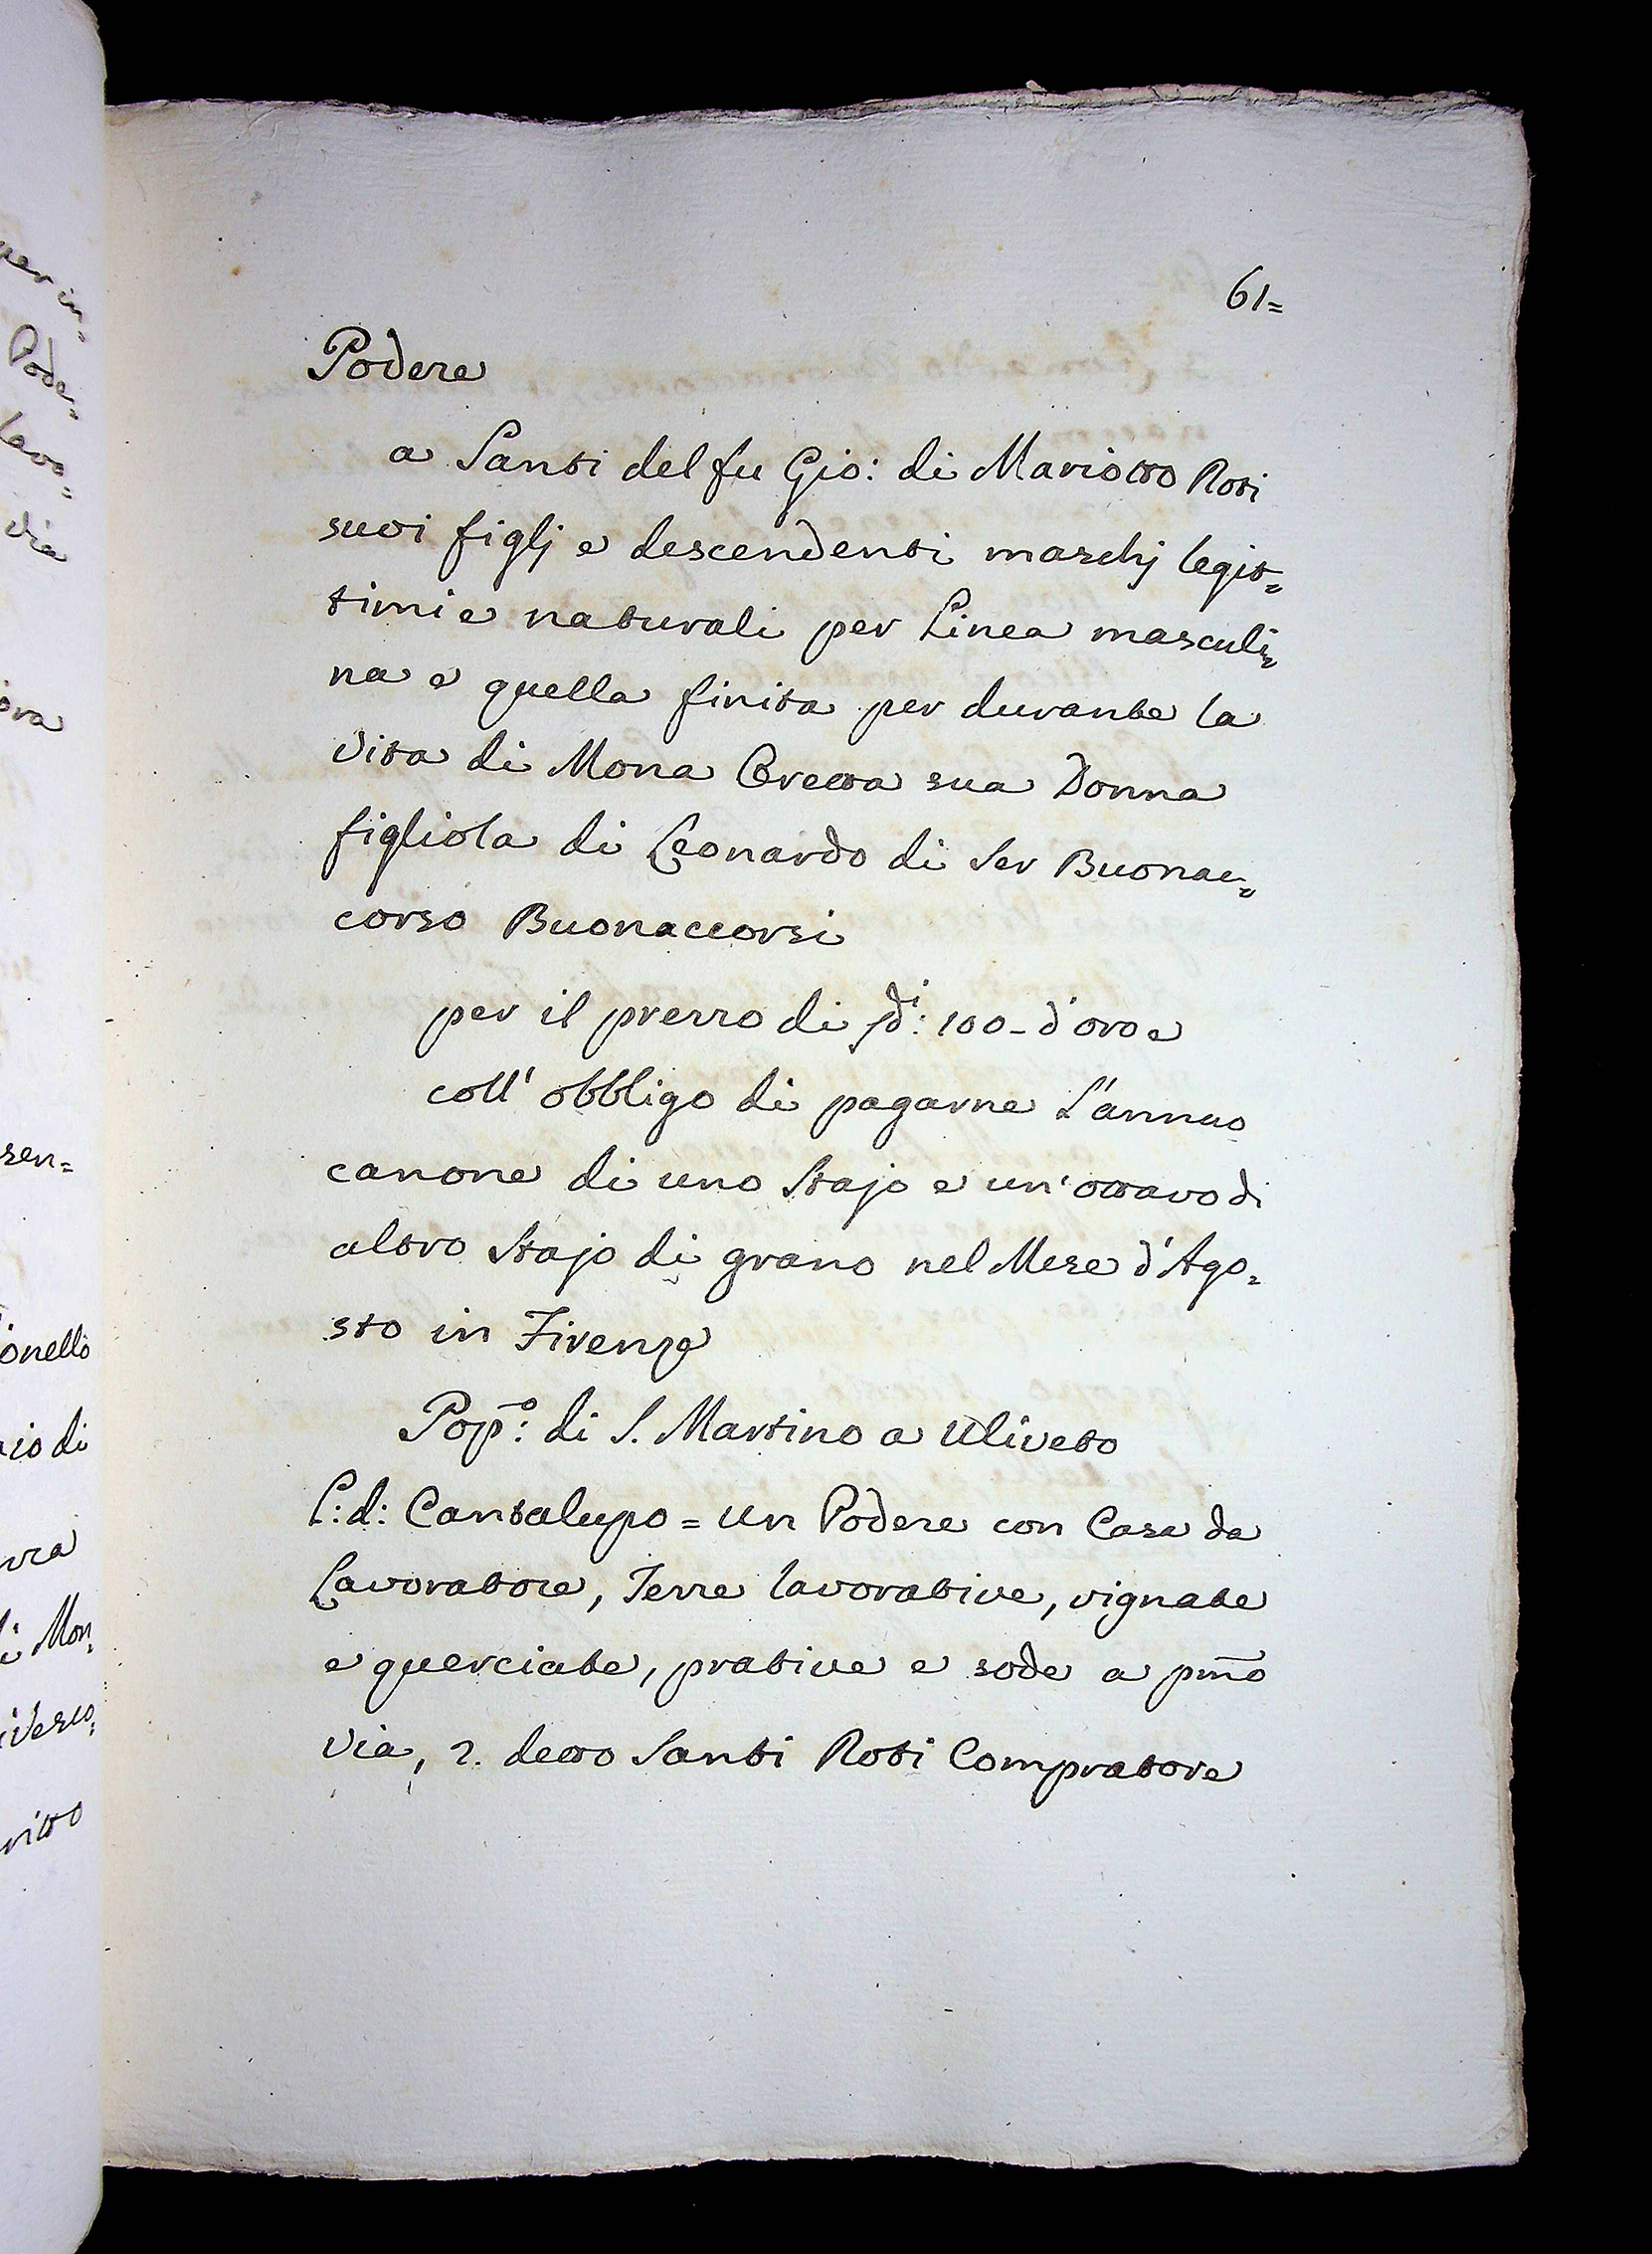 61=
Podere
a Santi del fu Gio: di Mariotto Roti
suoi figlj e descendenti maschj legit=
timi e naturali per Linea masculi=
na e quella finita per durante la
vita di Mona Oretta sua Donna
figliola di Leonardo di Ser Buonac=
corso Buonaccorsi
per il prezzo di 100- d'oro e
coll' obbligo di pagarne L'annuo
canone di uno Stajo e un' ottavo di
altro Stajo di grano nel Mese d'Ago=
sto in Firenze
Pop.o: di S. Martino a Uliveto
L: d: Cantalupo = Un Podere con Casa da
Lavoratore, Terre lavorative, vignate
e querciate, prative e sode a pmo
via, 2. detto Santi Roti Compratore
per in=
Pode=
lavo=
via
sen=
onello
io di
Mon=